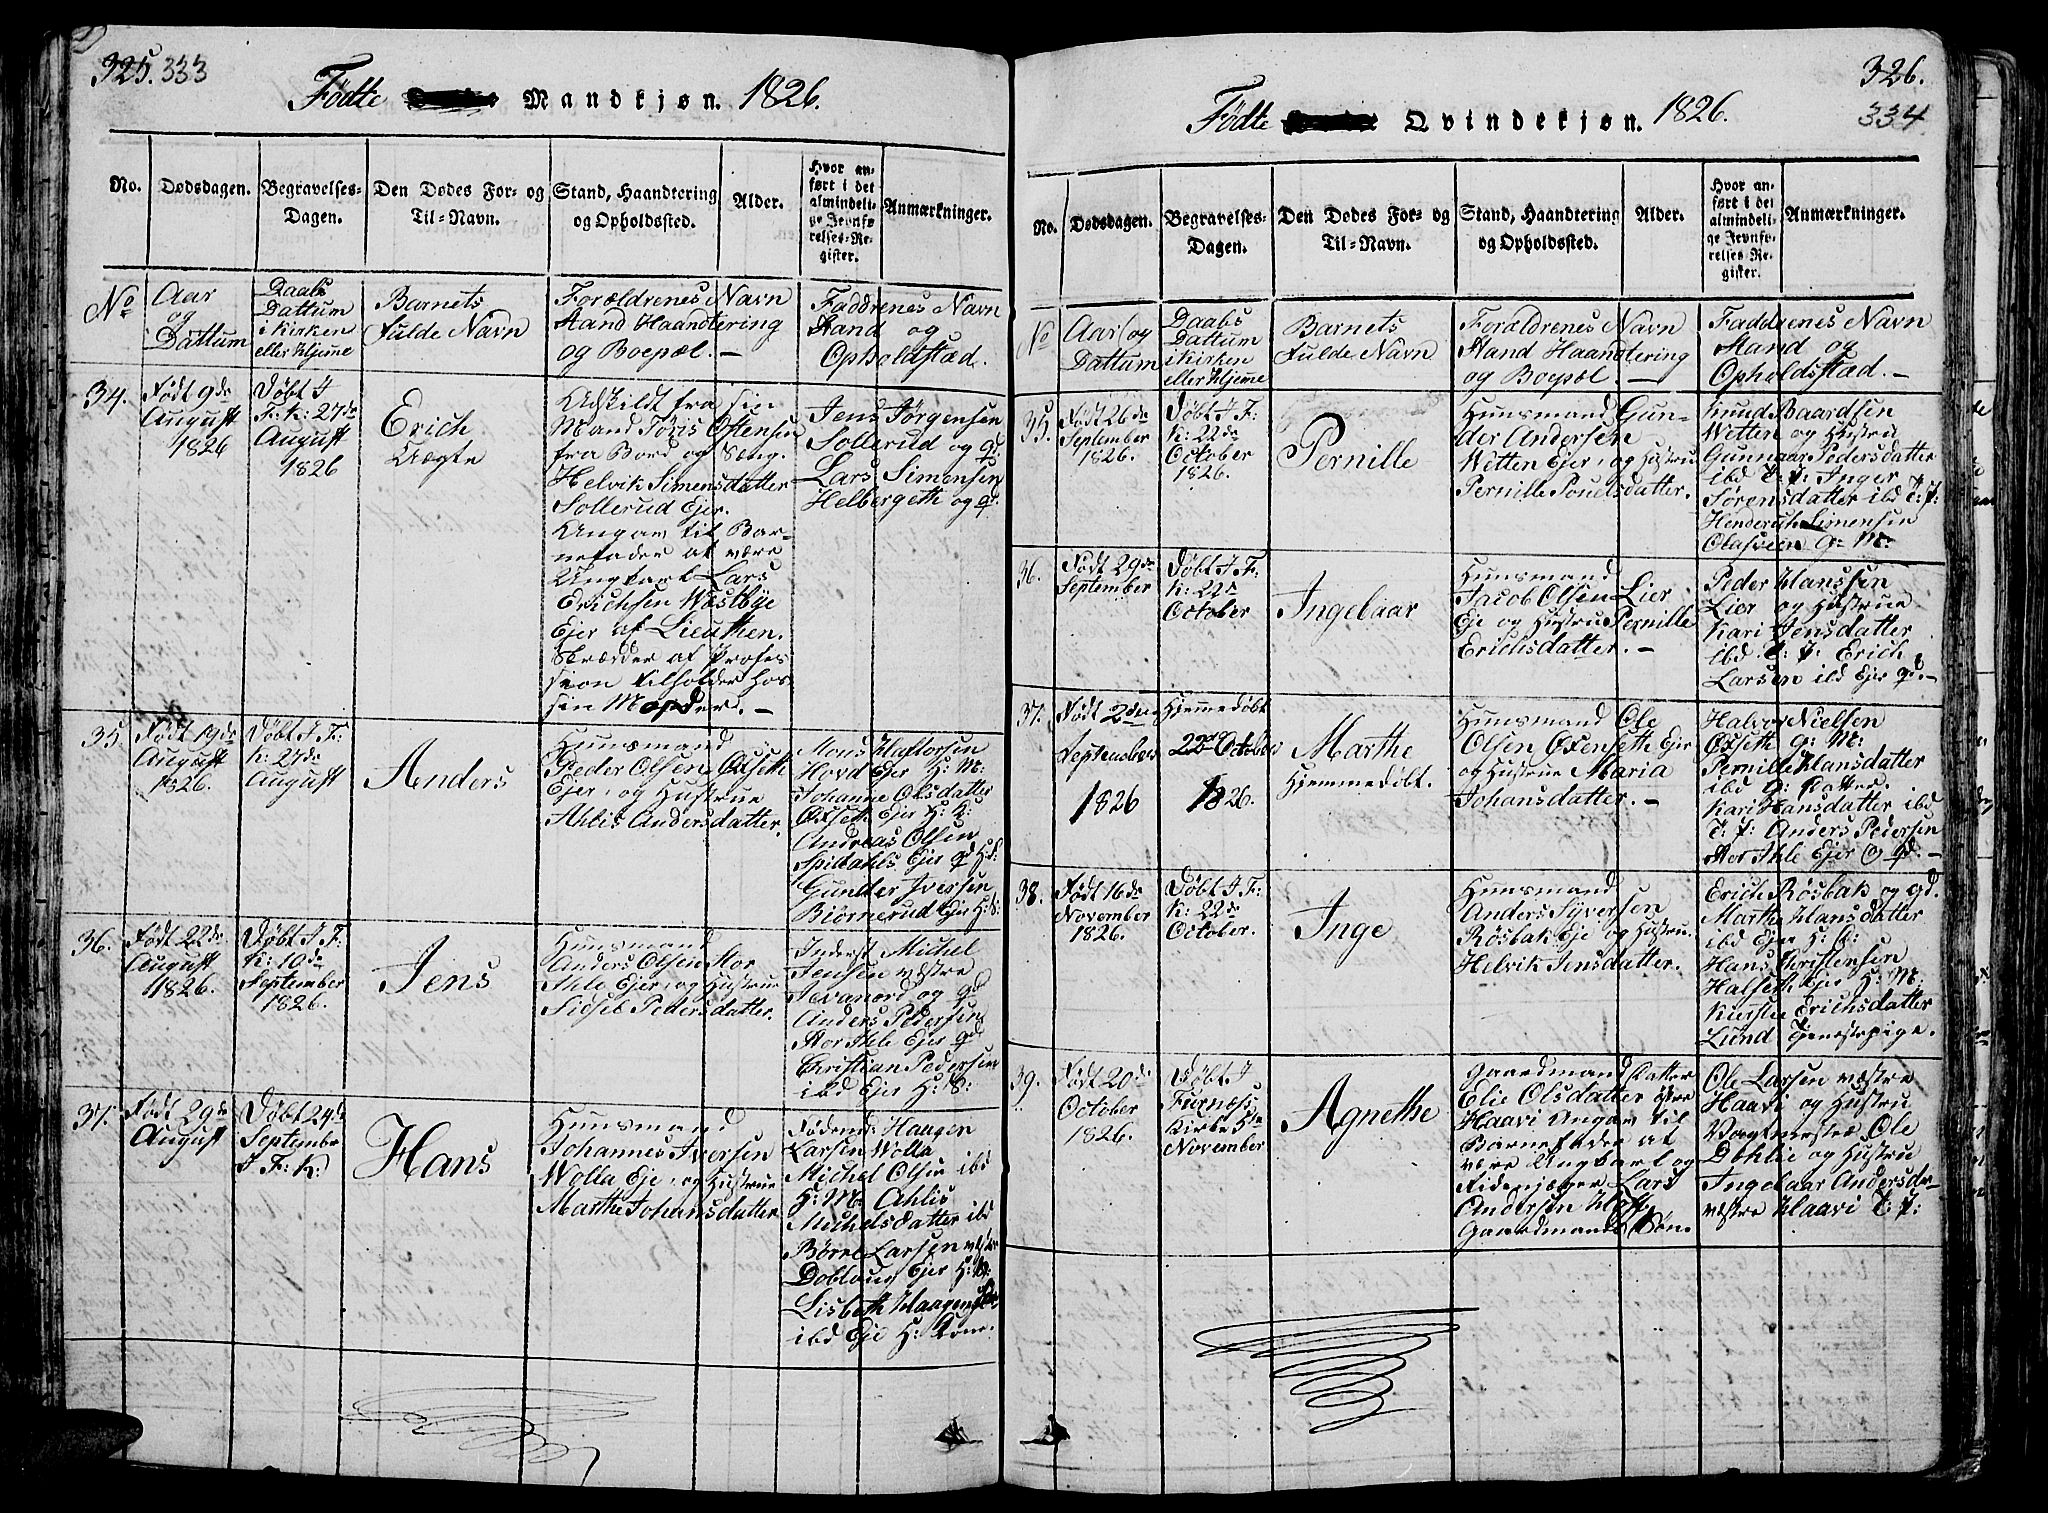 325. 333
Fødte Mandkjøn. 1826.
No.
Dødsdagen.
Begravelses-
Dagen.
Den Dødes For- og
Til-Navn.
Stand, Haandtering
og Opholdssted.
Alder.
Hvor an-
ført i det
almindeli-
ge Jevnfø-
relses-Re-
gister.
Anmærkninger.
No
Aar
og
Dattum
Daabs
Dattum
i Kirken
eller Hjeme
Barnets
Fulde Navn
Forældrenes Navn
Stand Haandtering
og Boepæl. —
Faddrenes Navn
Stand og
Opholdstæd.
34.
Født 9de
August
1826
Døbt I
F: K: 27de
August
1826
Erich
Uægte
Adskildt fra sin
Mand Tøris Ostensen
fra Bord og Sæng.
Helvik Simensdatter
Sollerud Ejer.
Angav til Bar-
nefader at være
Ungkarl Lars
Erichsen Westbye
Ejer af Lieuthen.
Skrædder af Profes
sion tilholder hos
sin Moder. —
Jens Jørgensen
Sollerud og q:
Lars Simensen
Helbergeth og q.
35
Født 19de
August
1826.
Døbt I F:
K: 27de
August
Anders
Huusmand
Peder Olsen Oxseth
Ejer, og Hustrue
Ahlis Andersdatter.
Mons Halvorsen
Hovd Ejer H: M:
Johanne Olsdatter
Oxseth Ejer H: K:
Andreas Olsen
Spitahls Ejer qd H: S:
Gunder Iversen
Biørnerud Eje H: S:
36.
Født 22de
August
1826.
Døbt I F:
K: 10de
September
1826.
Jens
Huusmand
Anders Olsen Stor
Ihle Ejer, og Hustrue
Sidsel Pedersdatter.
Inderst Michel
Jensen væstre
Jevanord og qd
Anders Pedersen
Stor Ihle Ejer qd
Christian Pedersen
ibd Ejer H: S:
37.
Født 29de
August
Døbt 24de
Septembr
I F: K:
Hans
Huusmand
Johannes Iversen
Wolla Eje, og Hustrue
Marthe Johansdatter
Føderd: Haagen
Larsen Wolla
Michel Olsen ibd
H: M: Ahlis
Michelsdatter ibd
Børre Larsen væstre
Doblaug Ejer H: S:
Lisbeth Haagensdr
ibd Eje H: Kone.
326.
334
Fødte Qvindekjøn. 1826.
No.
Dødsdagen.
Begravelses-
Dagen.
Den Dødes For- og
Til-Navn.
Stand, Haandtering
og Opholdssted.
Alder.
Hvor an-
ført i det
almindeli-
ge Jevnfø-
relses-Re-
gister.
Anmærkninger.
No
Aar og
Dattum
Daabs
Dattum
i Kirken
eller Hjeme
Barnets
Fulde Navn
Forældrenes Navn
Stand Haandtering
og Boepæl. —
Faddrenes Navn
Stand og
Opholdsstæd. —
35.
Født 26de
September
1826.
Døbt I F:
K: 22de
October
1826.
Pernille
Huusmand Gun-
der Andersen
Wetten Ejer, og Hustrue
Pernille Pouelsdatter.
Knud Baardsen
Wetten og Hustru
Gunnaar Pedersdatter
ibd T: P: Inger
Sørensdatter ibd T: P:
Henderich Simensen
Olasveen G: M:
36.
Født 29de
September
Døbt I F:
K: 22de
October
Ingebaar
Huusmand
Jacob Olsen Lier
Eje og Hustru Pernille
Erichsdatter. —
Peder Hanssen
Lier og Hustrue
Kari Jensdatter
ibd. T: P: Erich
Larsen ibd Ejer qd. —
37.
Født 2den
September
1826
Hjemmedøbt
22de October
1826.
Marthe
Hjemmedøbt.
Huusmand Ole
Olsen Oxenseth Ejer
og Hustrue Maria
Johansdatter. —
Halvor Nielsen
Oxseth G: M:
Pernille Hansdatter
ibd G: Datter.
Kari Hansdatter ibd
T: P: Anders Pedersen
Stor Ihle Ejer O qd. —
38.
Født 16de
November
1826.
Døbt I F:
K: 22de
October.
Inge
Huusmand
Anders Syversen
Røsbak Eje og Hustru
Helvik Jensdatter.
Erich Røsbak og qd.
Marthe Hansdatter
ibd Ejer H: D:
Hans Christensen
Halseth Ejer H: M:
Kierstie Erichsdatter
Lund Tjenestepige.
39.
Født 20de
October
1826.
Døbt I
Furnæss
Kirke 5te
November
Agnethe
Gaardmand Datter
Elie Olsdatter østre
Haavi Angav til
Barnefader at
være Ungkarl og
Ridenjæger Lars
Andersen Hoff,
Gaardmands Søn.
Ole Larsen væstre
Haavi og Hustru
Vagtmestræ Ole
Dehlie og Hustru
Ingebaar Andersdr
væstre Haavi T: P: